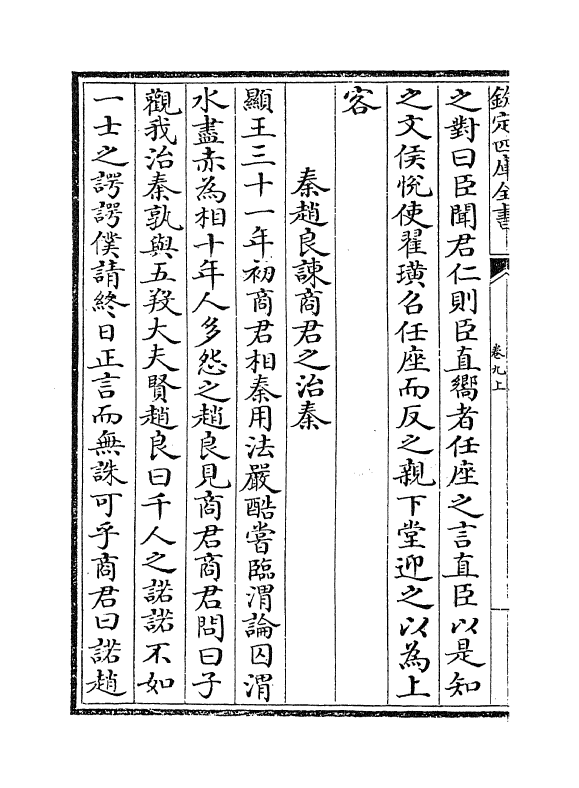 欽定四庫全書
卷九上
之對曰臣聞君仁則臣直嚮者任座之言直臣以是知
之文侯悅使翟璜召任座而反之親下堂迎之以為上
客
秦趙良諫商君之治秦
顯王三十一年初商君相秦用法嚴酷嘗臨渭論囚渭
水盡赤為相十年人多怨之趙良見商君商君問曰子
觀我治秦孰與五羖大夫賢趙良曰千人之諾諾不如
一士之諤諤僕請終日正言而無誅可乎商君曰諾趙